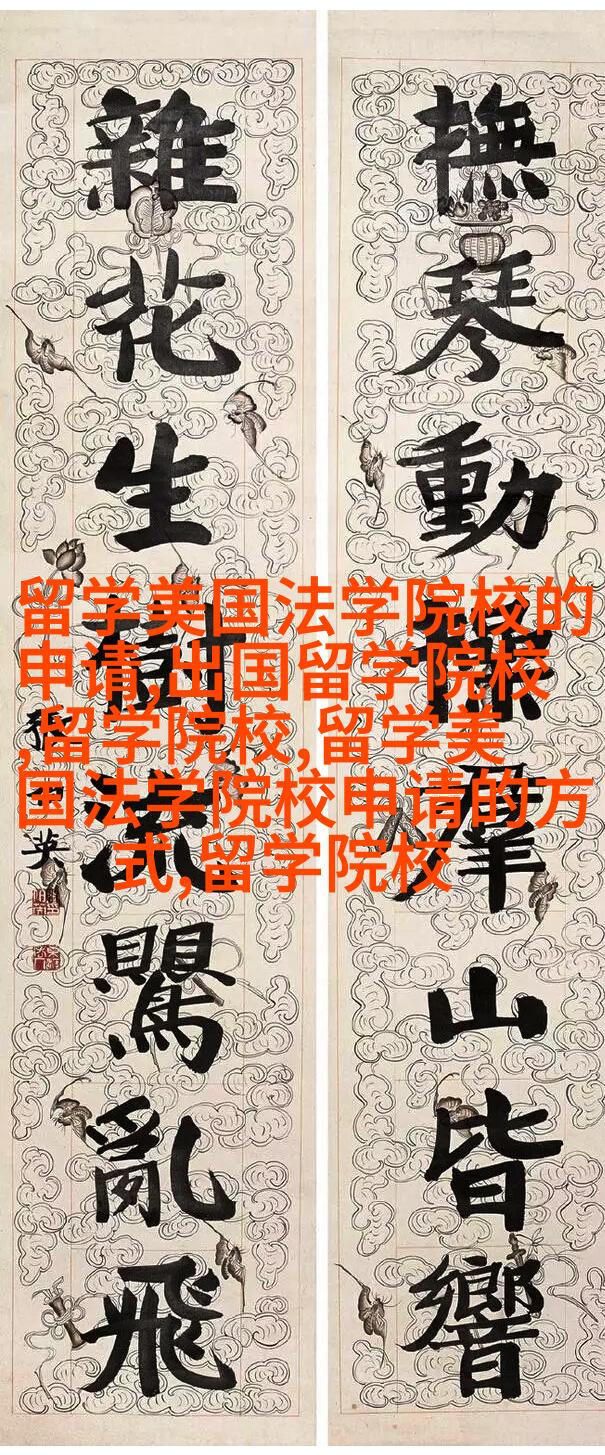 撫琴動操群山皆響
雜花生樹流鸎亂飛
留学美国法学院校的
申请,出国留学院校
,留学院校,留学美
国法学院校申请的方
式,留学院校